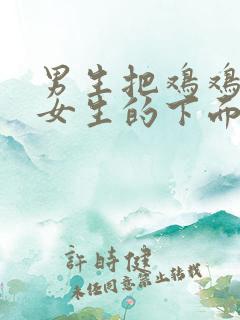 男生把鸡鸡
女生的下面
許時健
未经同意禁止转载